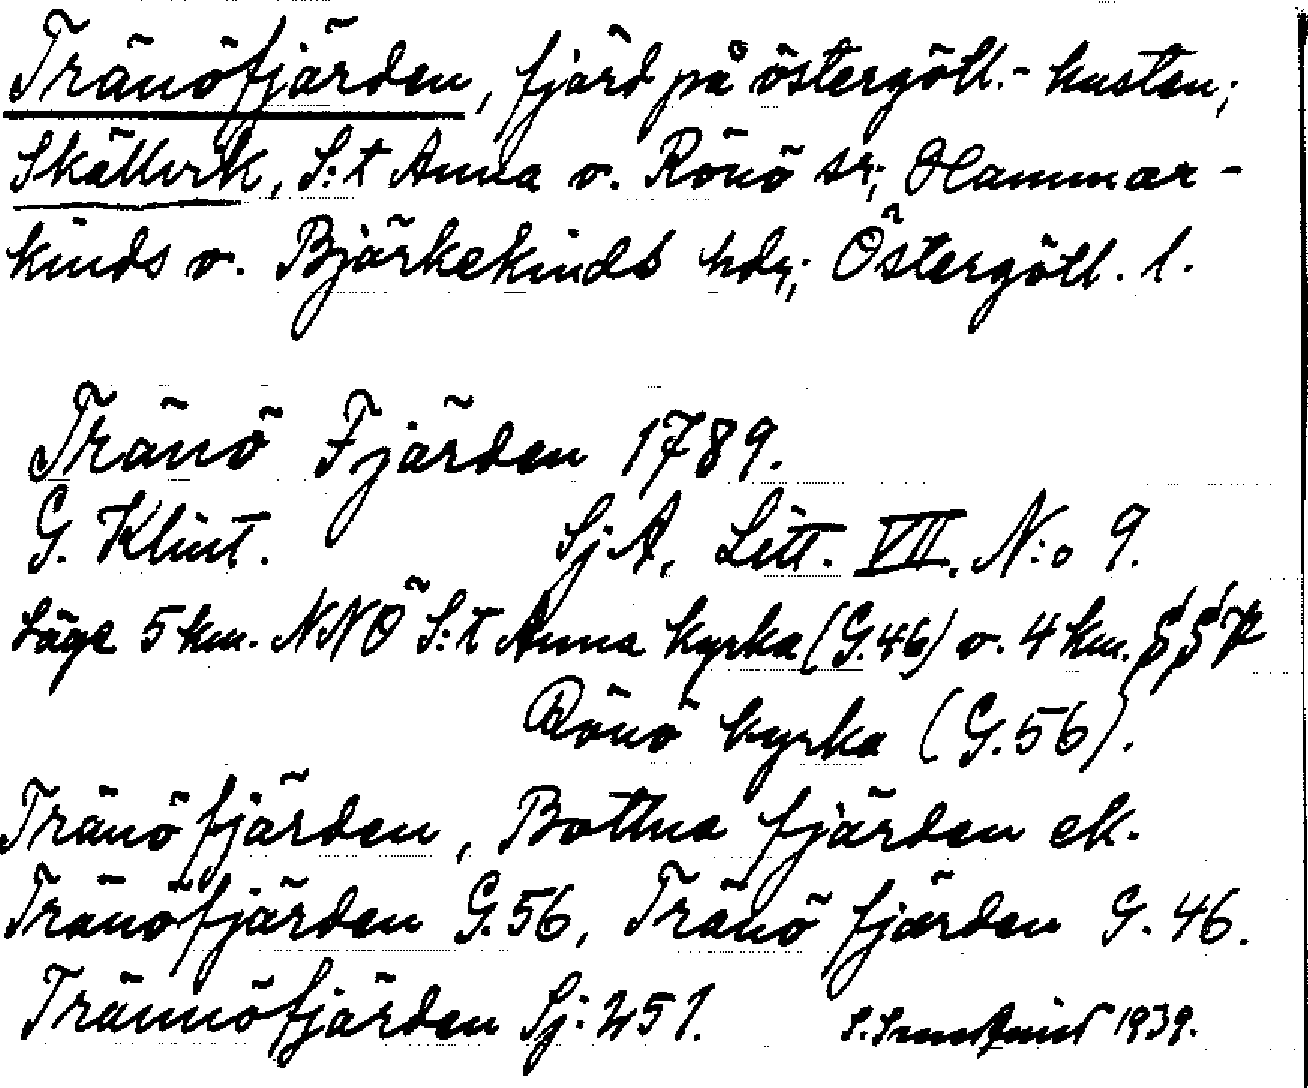 Tränöfjärden, fjärd på östergötl.-kusten;
Skällvik, S:t Anna o. Rönö sr; Hammar-
kinds o. Björkekinds hdr; Östergötl. l.
Tränö Fjärden 1789.
G. Klint. SjA, Litt. VII. N:o 9.
Läge 5 km. NNÖ S:t Anna kyrka (G.46) o. 4 km.
Rönö kyrka (G.56).
Tränöfjärden, Bottna fjärden ek.
Tränöfjärden G.56, Tränö fjärden G.46.
Trännöfjärden Sj:251. 1939.